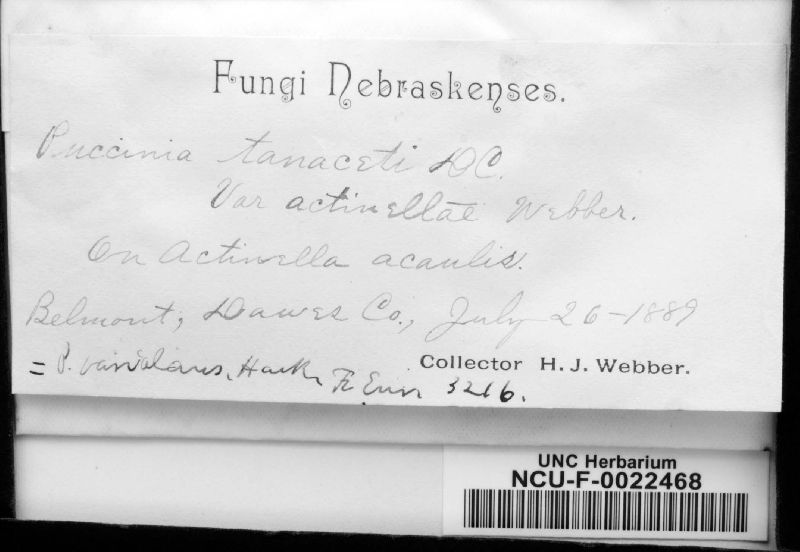 Fungi Nebraskenses.
Puccinia tanaceti DC.
Var actinellae Webber.
On Actinella acaulis.
Belmont, Dawes Co., July 26-1889
Collector H. J. Webber.
= P. variolans, Hark. 3216.
UNC Herbarium
NCU-F-0022468